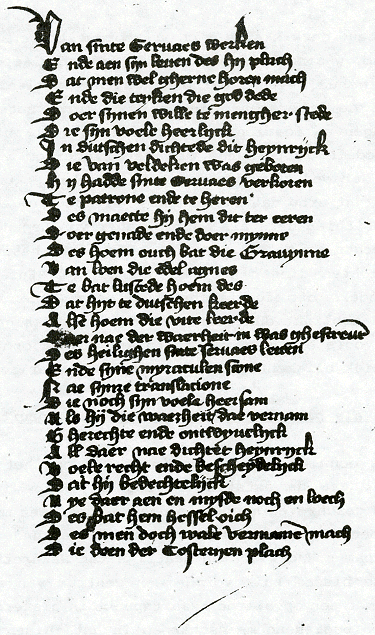 Van sinte Servaes werken
Ende aen sijn leuen des hij plach
Dat men wel gherne horen mach
Ende die teyken die god dede
Doer synen wille te mengher stede
Die sijn voele heerlijck
In dutschen dichtede dit heynrijck
Die van veldeken was geboren
Hij hadde sinte Servaes verkoren
Te patrone ende te heren
Des maecte hij hem dit ter eeren
Doer genade ende doer mynne
Des hoem ouch bat die Grauynne
Van loen die edel agnes
Te bat lustede hoem des
Dat hijt te dutschen keerde
Alst hoem die vite leerde
daer nae der waerheit in was ghescreuen
Des heilighen sinte seruaes leuen
Ende syne myraculen scone
Nae synre translacione
Die noch sijn voele heersam
Als hij die waerheit dae vernam
Gherechte ende ontwyuelijck
All daer nae dichtet heynrijck
Voele recht ende bescheydelijck
Dat hij bedechtelijck
Nye daer aen en mysde noch en loech
Des bat hem hessel oich
Des men doch wale vermane mach
Die doen der Costeryen plach